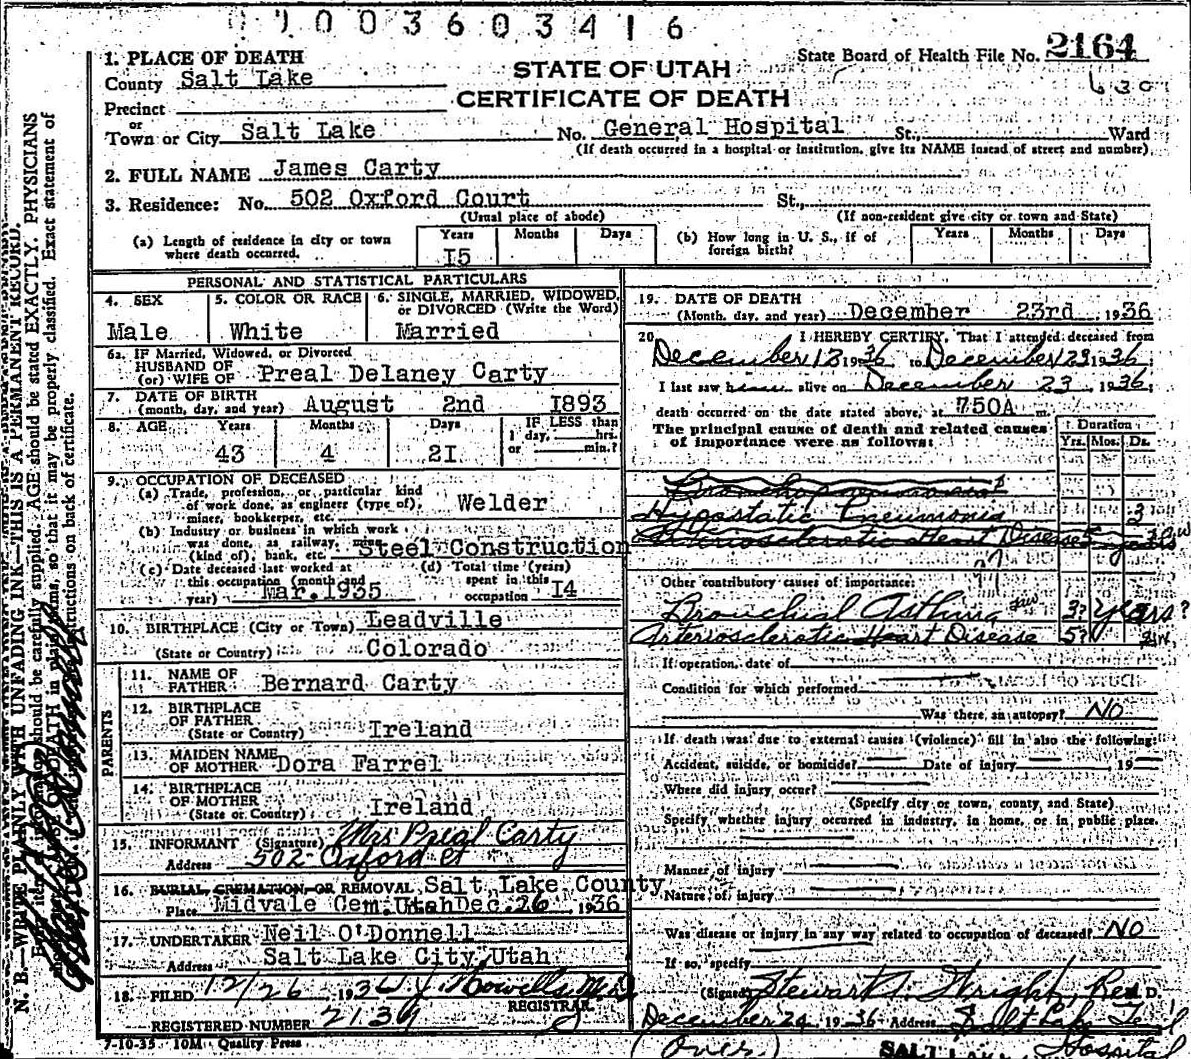 003603416
1. PLACE OF DEATH
State Board of Health File No. 2164
County Salt Lake
STATE OF UTAH
630
Precinct
CERTIFICATE OF DEATH
or
Town or City Salt Lake No. General Hospital St., Ward
(If death occurred in a hospital or institution, give its NAME instead of street and number)
2. FULL NAME James Carty
3. Residence: No. 502 Oxford Court St.,
(Usual place of abode) (If non-resident give city or town and State)
(a) Length of residence in city or town where death occurred. Years Months Days
I5
(b) How long in U. S., if of foreign birth? Years Months Days
PERSONAL AND STATISTICAL PARTICULARS
4. SEX 5. COLOR OR RACE 6. SINGLE, MARRIED, WIDOWED, or DIVORCED (Write the Word)
Male White Married
6a. IF Married, Widowed, or Divorced
HUSBAND OF
(or) WIFE OF Preal Delaney Carty
7. DATE OF BIRTH
(month, day, and year) August 2nd I893
8. AGE Years Months Days IF LESS than
1 day, hrs.
or min.?
43 4 2I
9. OCCUPATION OF DECEASED
(a) Trade, profession, or particular kind
of work done, as engineer (type of),
miner, bookkeeper, etc. Welder
(b) Industry or business in which work
was done, as railway, mine
(kind of), bank, etc. Steel Construction
(c) Date deceased last worked at
this occupation (month and
year) Mar. 1935
(d) Total time (years)
spent in this
occupation I4
10. BIRTHPLACE (City or Town) Leadville
(State or Country) Colorado
PARENTS
11. NAME OF
FATHER Bernard Carty
12. BIRTHPLACE
OF FATHER
(State or Country) Ireland
13. MAIDEN NAME
OF MOTHER Dora Farrel
14. BIRTHPLACE
OF MOTHER
(State or Country) Ireland
15. INFORMANT (Signature) Mrs Preal Carty
Address 502 Oxford Ct
16. BURIAL, CREMATION, OR REMOVAL Salt Lake County
Place Midvale Cem. Utah Dec. 26, 1936
17. UNDERTAKER Neil O'Donnell
Address Salt Lake City, Utah
18. FILED 12/26 1936 J. Howells M.D
REGISTRAR
REGISTERED NUMBER 2139
7-10-35 10M Quality Press
19. DATE OF DEATH
(Month, day, and year) December 23rd 1936
20. I HEREBY CERTIFY, That I attended deceased from
December 12 1936 to December 23 1936;
I last saw him alive on December 23, 1936;
death occurred on the date stated above, at 750A m.
The principal cause of death and related causes
of importance were as follows:
Duration
Yrs. Mos. Ds.
Bronchopneumonia
Hypostatic Pneumonia 3
Arteriosclerotic Heart Disease 5 years
Other contributory causes of importance:
Bronchial Asthma 3? Years?
Arteriosclerotic Heart Disease 5?
If operation, date of
Condition for which performed
Was there an autopsy? No
If death was due to external causes (violence) fill in also the following:
Accident, suicide, or homicide? Date of injury 19
Where did injury occur?
(Specify city or town, county, and State)
Specify whether injury occurred in industry, in home, or in public place.
Manner of injury
Nature of injury
Was disease or injury in any way related to occupation of deceased? No
If so, specify
(Signed) Stewart A. Wright, Res D.
December 24, 1936 Address Salt Lake Gen'l
(over) Hospital
SALT LAKE
N. B.—WRITE PLAINLY WITH UNFADING INK—THIS IS A PERMANENT RECORD.
Every item of information should be carefully supplied. AGE should be stated EXACTLY. PHYSICIANS
should state CAUSE OF DEATH in plain terms, so that it may be properly classified. Exact statement of
instructions on back of certificate.